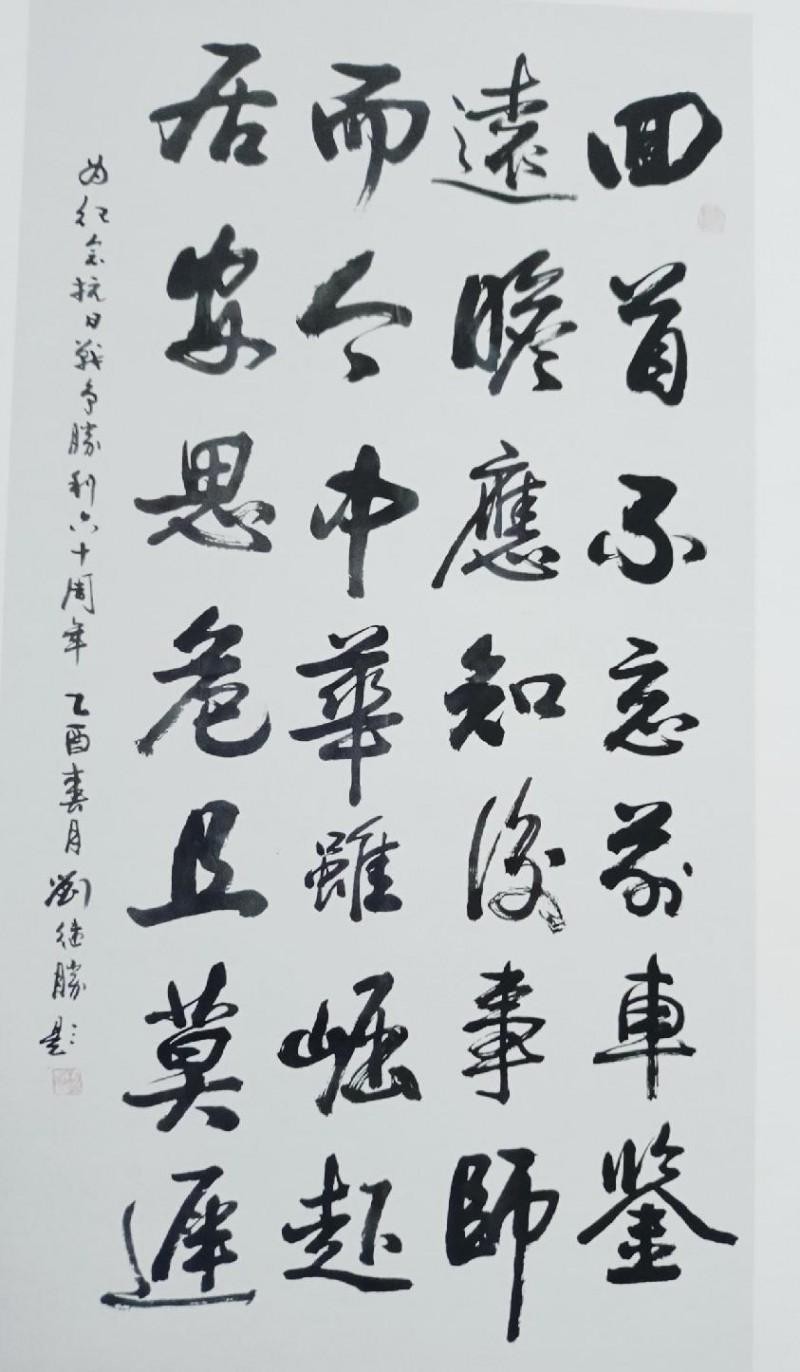 回首不忘前車鑒
遠瞻應知後事師
而今中華雖崛起
居安思危且莫遲
为纪念抗日戰争勝利六十周年 乙酉春月 劉继勝題